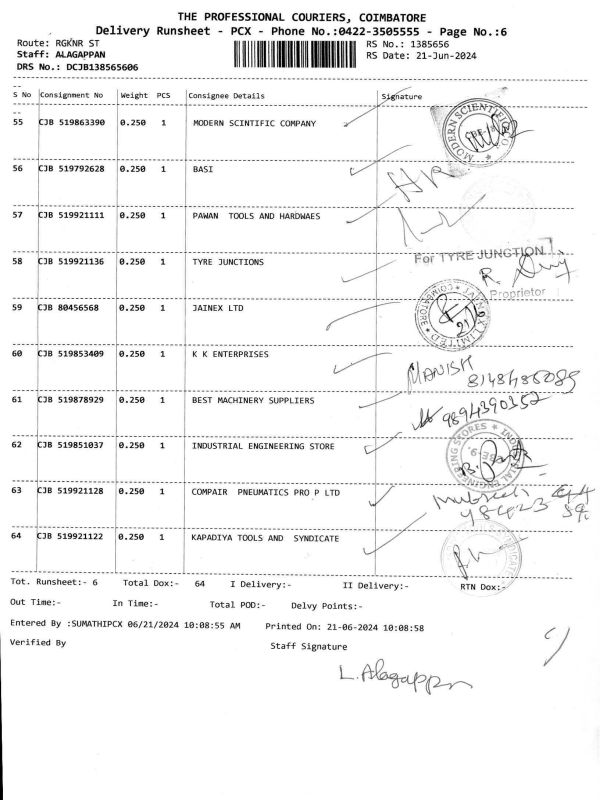 THE PROFESSIONAL COURIERS, COIMBATORE
Delivery Runsheet - PCX - Phone No.:0422-3505555 - Page No.:6
Route: RGKNR ST
RS No.: 1385656
Staff: ALAGAPPAN
RS Date: 21-Jun-2024
DRS No.: DCJB138565606
S No Consignment No Weight PCS Consignee Details Signature
55 CJB 519863390 0.250 1 MODERN SCINTIFIC COMPANY
MODERN SCIENTIFIC CO
56 CJB 519792628 0.250 1 BASI
57 CJB 519921111 0.250 1 PAWAN TOOLS AND HARDWAES
58 CJB 519921136 0.250 1 TYRE JUNCTIONS
For TYRE JUNCTION
Proprietor
59 CJB 80456568 0.250 1 JAINEX LTD
60 CJB 519853409 0.250 1 K K ENTERPRISES
MANISH
8148486089
61 CJB 519878929 0.250 1 BEST MACHINERY SUPPLIERS
9894390352
62 CJB 519851037 0.250 1 INDUSTRIAL ENGINEERING STORE
INDUSTRIAL ENGINEERING STORES
63 CJB 519921128 0.250 1 COMPAIR PNEUMATICS PRO P LTD
64 CJB 519921122 0.250 1 KAPADIYA TOOLS AND SYNDICATE
Tot. Runsheet:- 6 Total Dox:- 64 I Delivery:- II Delivery:- RTN Dox:-
Out Time:- In Time:- Total POD:- Delvy Points:-
Entered By :SUMATHIPCX 06/21/2024 10:08:55 AM Printed On: 21-06-2024 10:08:58
Verified By Staff Signature
L. Alagappan